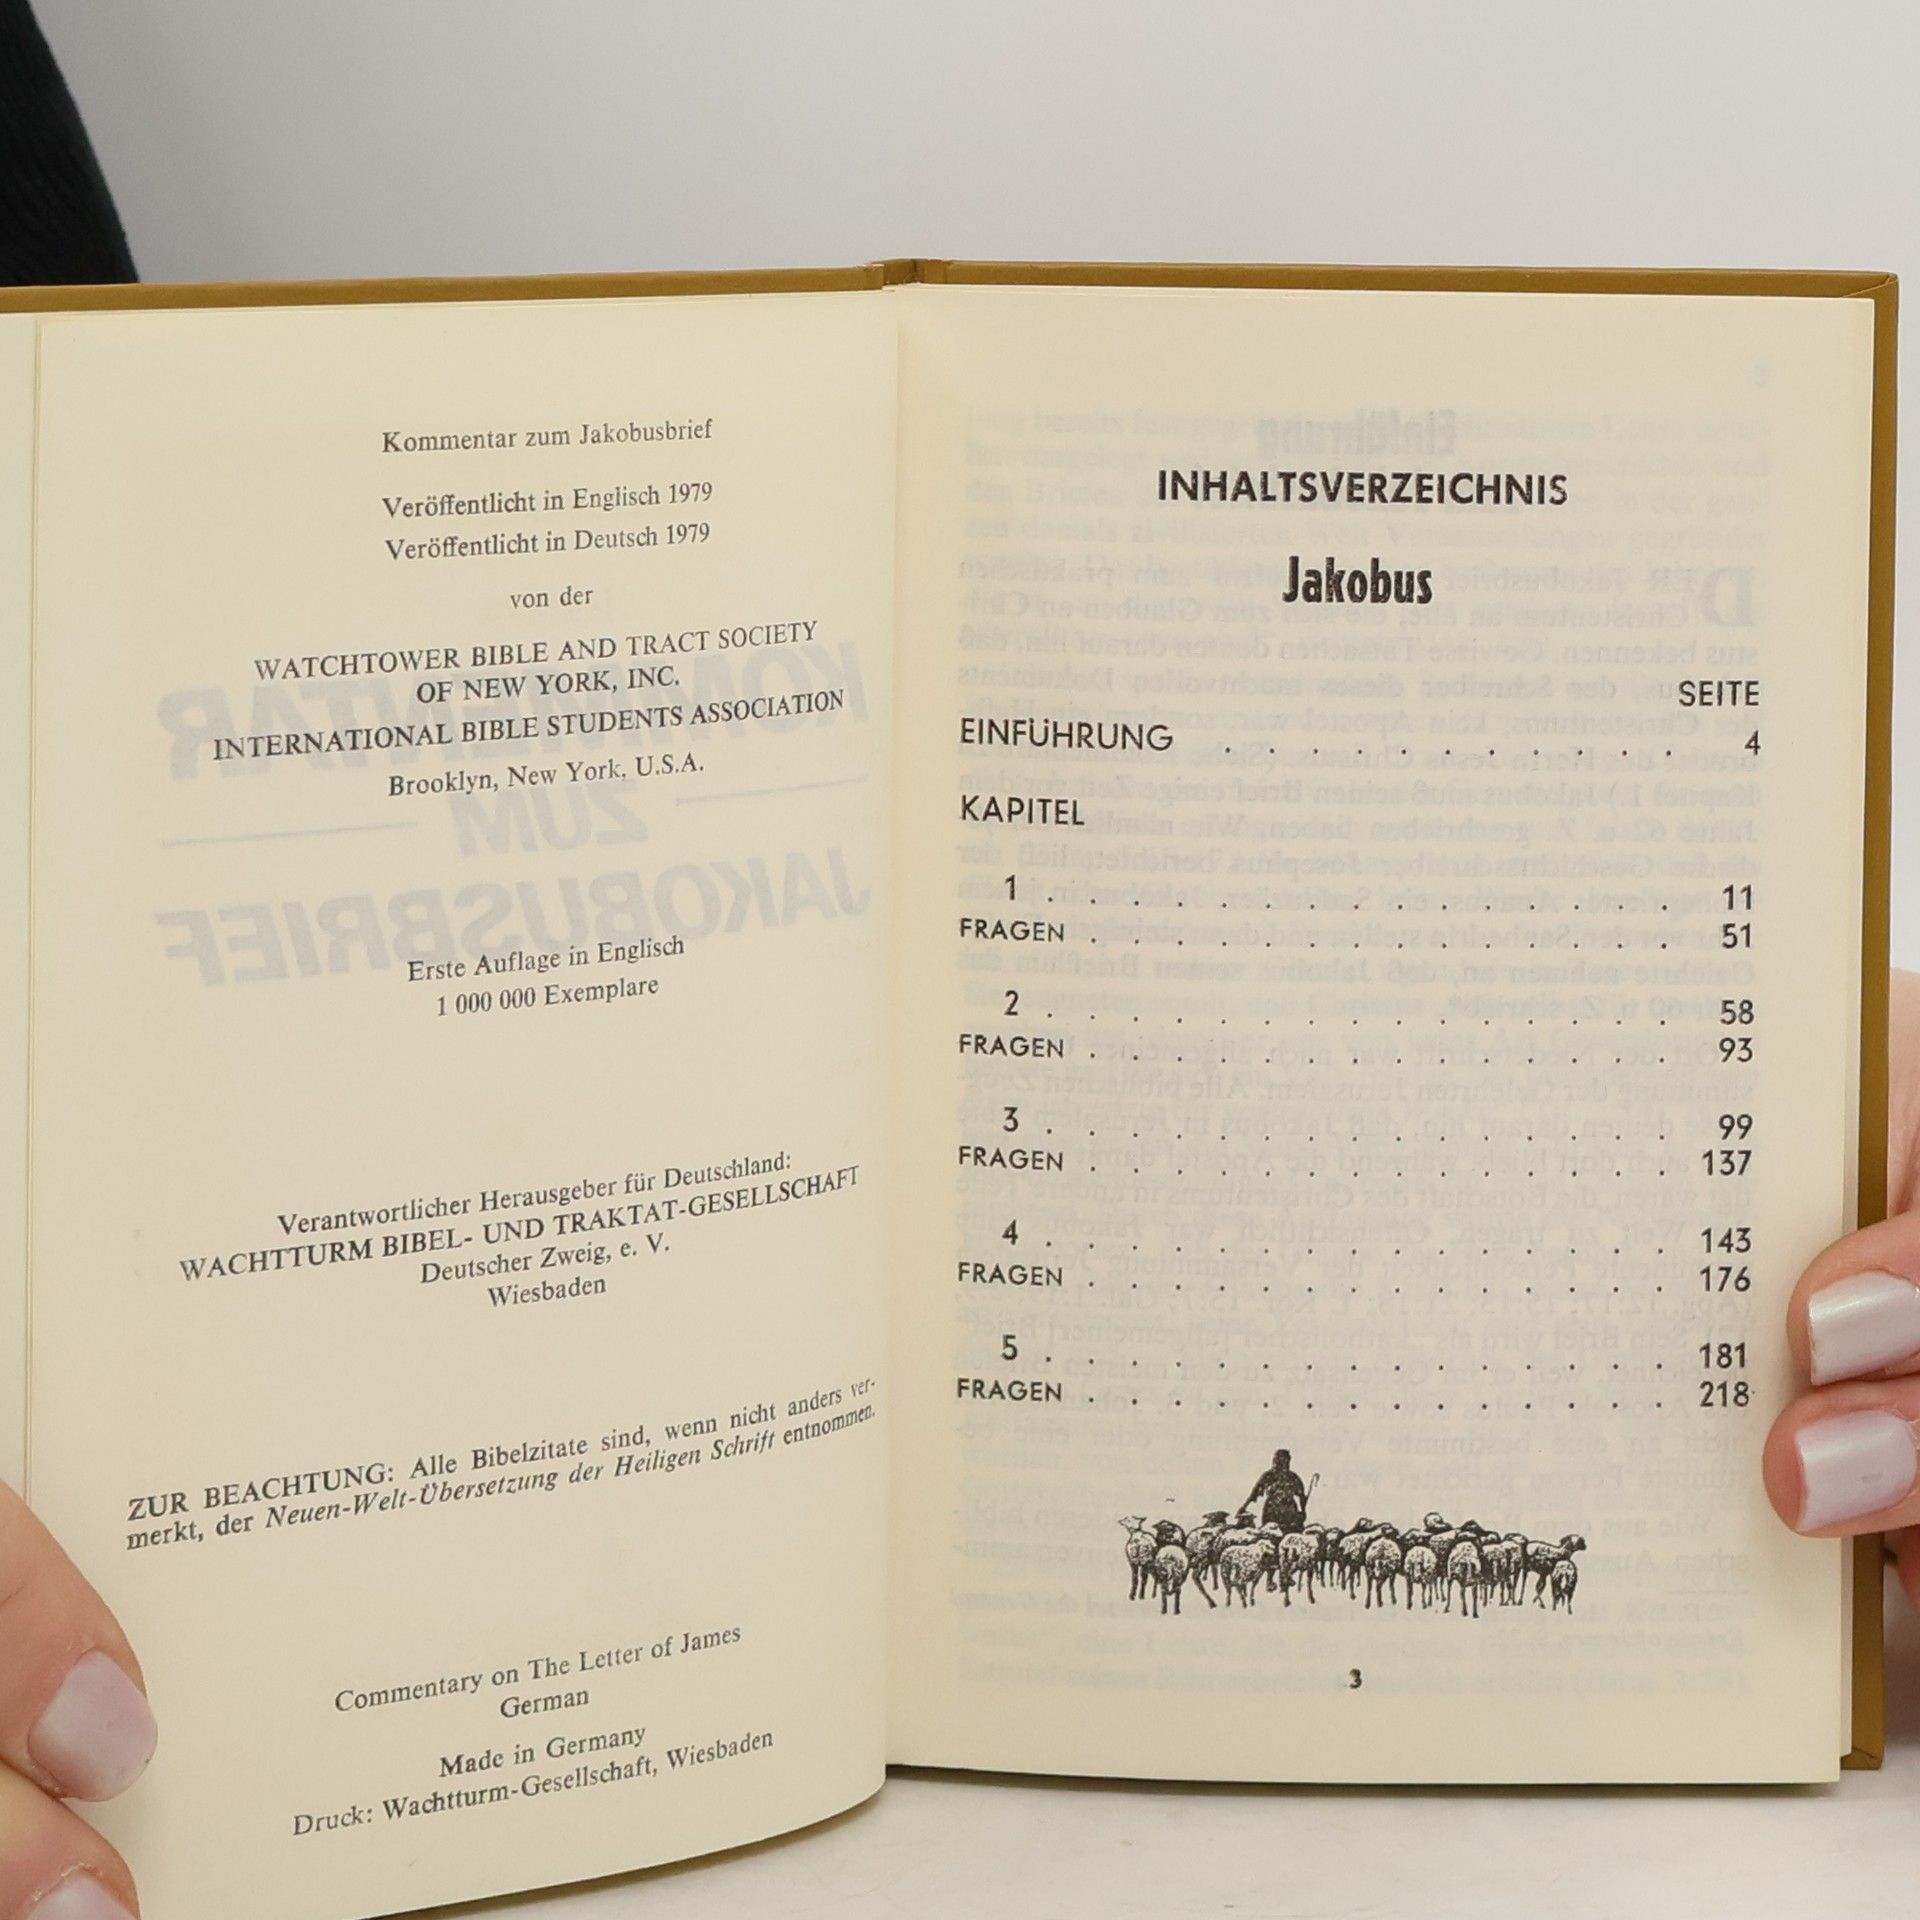 Kommentar zum Jakobusbrief
Veröffentlicht in Englisch 1979
Veröffentlicht in Deutsch 1979
von der
WATCHTOWER BIBLE AND TRACT SOCIETY
OF NEW YORK, INC.
INTERNATIONAL BIBLE STUDENTS ASSOCIATION
Brooklyn, New York, U.S.A.
Erste Auflage in Englisch
1 000 000 Exemplare
Verantwortlicher Herausgeber für Deutschland:
WACHTTURM BIBEL- UND TRAKTAT-GESELLSCHAFT
Deutscher Zweig, e. V.
Wiesbaden
ZUR BEACHTUNG: Alle Bibelzitate sind, wenn nicht anders ver-
merkt, der Neuen-Welt-Übersetzung der Heiligen Schrift entnommen.
Commentary on The Letter of James
German
Made in Germany
Druck: Wachtturm-Gesellschaft, Wiesbaden
INHALTSVERZEICHNIS
Jakobus
SEITE
EINFÜHRUNG . . . . . . . . . . . 4
KAPITEL
1 . . . . . . . . . . . . . . . 11
FRAGEN . . . . . . . . . . . . . . 51
2 . . . . . . . . . . . . . . . 58
FRAGEN . . . . . . . . . . . . . . 93
3 . . . . . . . . . . . . . . . 99
FRAGEN . . . . . . . . . . . . . . 137
4 . . . . . . . . . . . . . . . 143
FRAGEN . . . . . . . . . . . . . . 176
5 . . . . . . . . . . . . . . . 181
FRAGEN . . . . . . . . . . . . . . 218
3